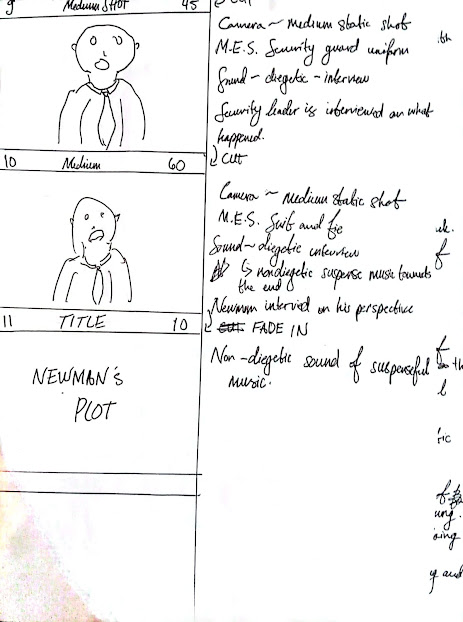 9 MEDIUM SHOT 45
CUT
Camera ~ Medium static shot
M.E.S. Security guard uniform
Sound - diegetic - interview
Security leader is interviewed on what
happened.
CUT
10 Medium 60
Camera ~ Medium static shot
M.E.S. Suit and tie
Sound ~ diegetic interview
↳ nondiegetic suspense music towards
the end
Newman intervied on his perspective
FADE IN
11 TITLE 10
NEWMAN'S
PLOT
Non-diegetic sound of suspenseful
music.